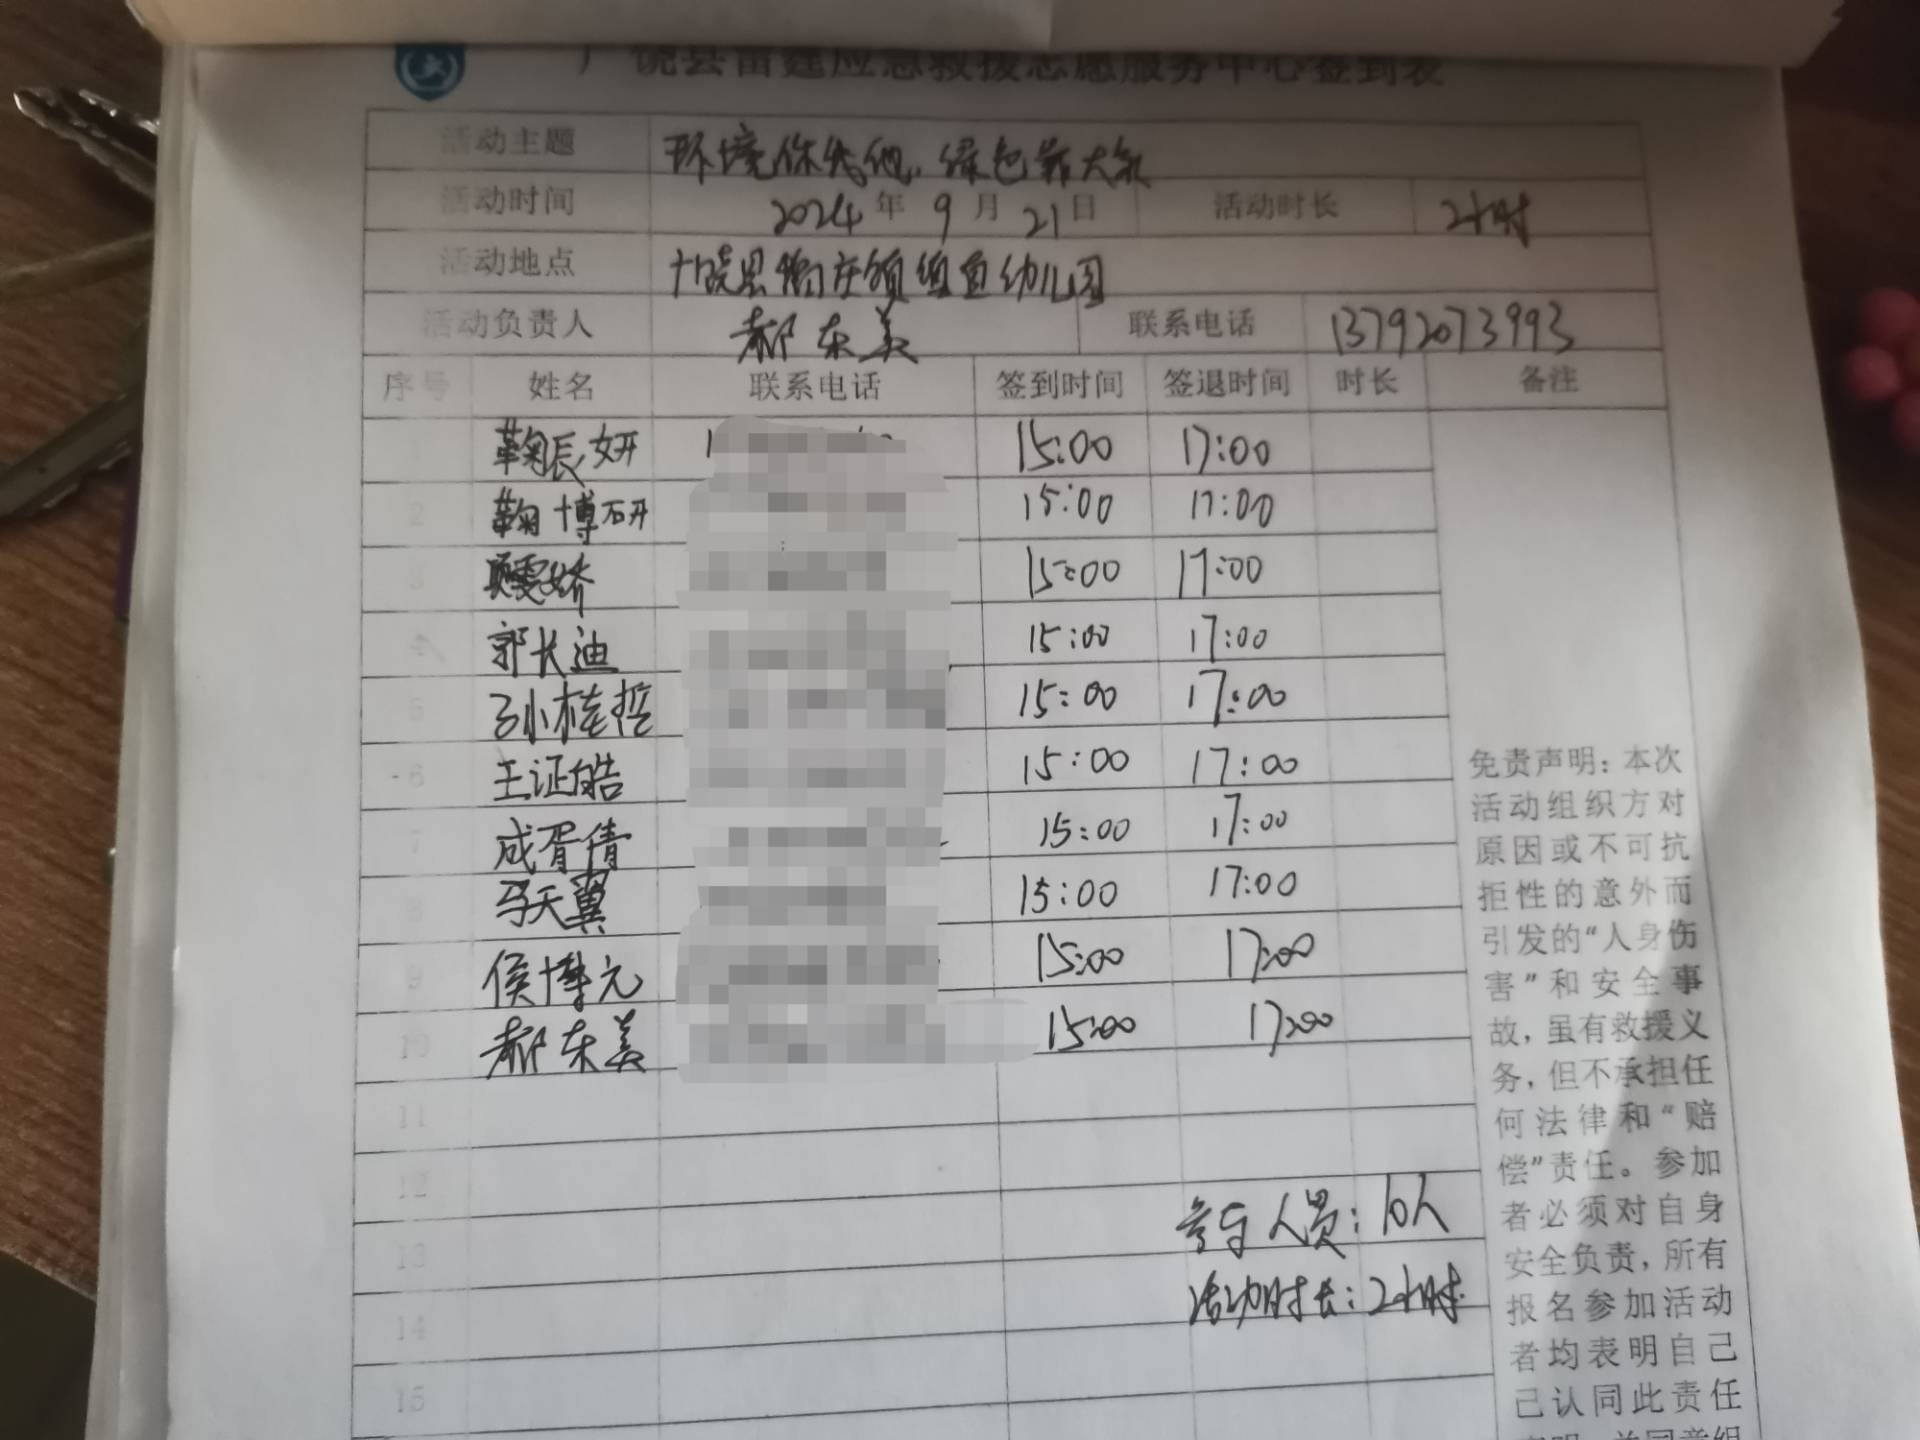 饶县雷霆应急救援志愿服务中心签到表
活动主题 环境你我他,绿色靠大家
活动时间 2024年9月21日 活动时长 2小时
活动地点 广饶县 幼儿园
活动负责人 郝东美 联系电话 13792073993
序号 姓名 联系电话 签到时间 签退时间 时长 备注
1 鞠辰妍 15:00 17:00
2 鞠博研 15:00 17:00
3 15:00 17:00
4 郭长迪 15:00 17:00
5 孙桂哲 15:00 17:00
6 王证皓 15:00 17:00
7 成胥倩 15:00 17:00
8 马天翼 15:00 17:00
9 侯博元 15:00 17:00
10 郝东美 15:00 17:00
11
12
13
14
15
参与人员:10人
活动时长:2小时
免责声明:本次
活动组织方对
原因或不可抗
拒性的意外而
引发的“人身伤
害”和安全事
故,虽有救援义
务,但不承担任
何法律和“赔
偿”责任。参加
者必须对自身
安全负责,所有
报名参加活动
者均表明自己
己认同此责任